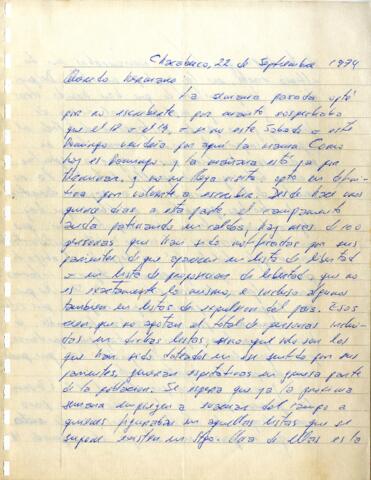 Chacabuco, 22 de Septiembre 1974
Querido hermano
La semana pasada opté
por no escribirte, por cuanto sospechaba
que el 18 o el 19, o si no este Sábado o este
Domingo vendría por aquí la mamá. Como
hoy es Domingo, y la mañana está ya por
terminar, y no me llega visita opto en
por a escribir. Desde hace unos
quince días a esta parte, el campamento
anda en , hay más de 100
personas que han sido notificadas por sus
parientes de que aparecen en lista de libertad
o en lista de proposición de libertad, que no
es exactamente lo mismo, e incluso algunos
también en listas de expulsión del país. Esos
creo, que no agotan el total de personas inclui-
das en dichas listas, sino que sólo son los
que han sido en ese sentido por sus
parientes, expectativas en gran parte
de la población. Se espera que ya la próxima
semana empiecen a sacar del campo a
quienes figuraban en aquellas listas que se
supone existen en Stgo. Una de ellas es la